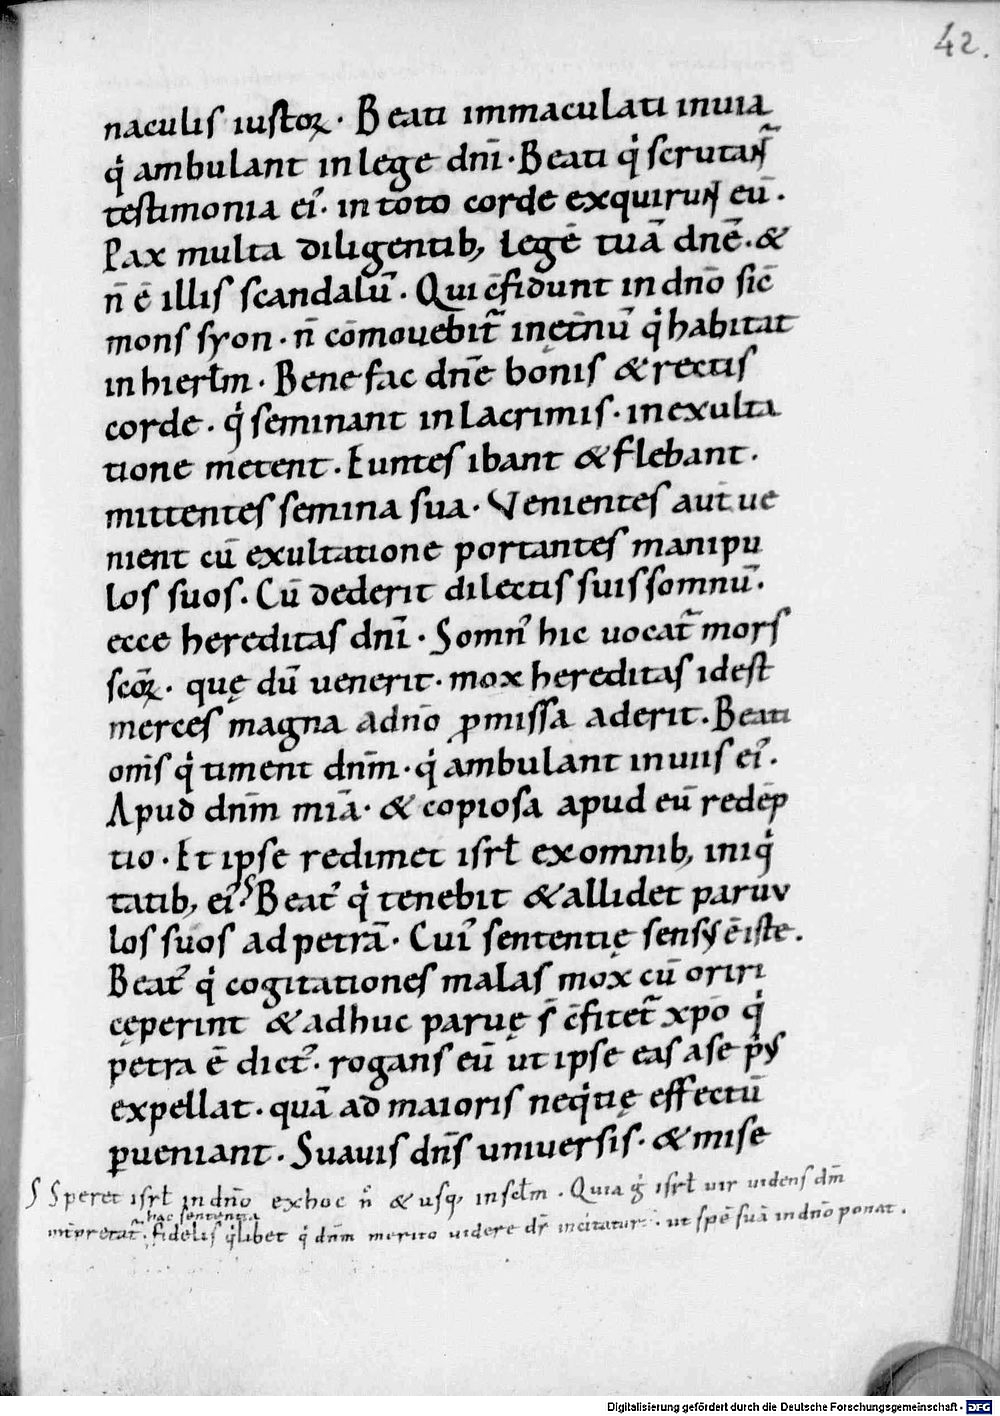 42.
naculis iustoꝝ · Beati immaculati in uia
qͥ ambulant in lege dnī · Beati qͥ scrutant̄
testimonia ei᾽ · in toto corde exquirunt eū ·
Pax multa diligentib; legē tuā dnē · &
n̄ ē illis scandalū · Qui c̄fidunt in dnō sic̄
mons syon · n̄ cōmouebit᷑ in ęt̄nū qͥ habitat
in hierl̄m · Bene fac dnē bonis & rectis
corde · qͥ seminant in lacrimis · in exulta
tione metent · Euntes ibant & flebant ·
mittentes semina sua · Venientes aut̄ ue
nient cū exultatione portantes manipu
los suos · Cū dederit dilectis suis somnū ·
ecce hereditas dnī · Somn᾽ hic uocat᷑ mors
scōꝝ · quę dū uenerit · mox hereditas id est
merces magna a dnō ꝓmissa aderit · Beati
om̄s qͥ timent dnm̄ · qͥ ambulant in uiis ei᾽ ·
Apud dnm̄ mīa · & copiosa apud eū redēp
tio · Et ipse redimet isrł ex omnib; iniqͥ
tatib; ei᾽ · Beat᾽ qͥ tenebit & allidet paruu
los suos ad petrā · Cui᾽ sententię sensus ē iste ·
Beat᾽ qͥ cogitationes malas mox cū oriri
cęperint & adhuc paruę s̄ c̄fitet᷑ xpō qͥ
petra ē dict᾽ · rogans eū ut ipse eas a se pͥus
expellat · quā ad maioris neqͥtię effectū
ꝑueniant · Suauis dns̄ uniuersis · & mise
S Speret isrł in dnō ex hoc n̄ & usq; in scl̄m · Quia gͦ isrł uir uidens dm̄
hac sententia
int̄pretat᷑ · fidelis qͥlibet qͥ dnm̄ merito uidere dr̄ incitatur · ut spē suā in dnō ponat ·
Digitalisierung gefördert durch die Deutsche Forschungsgemeinschaft · DFG